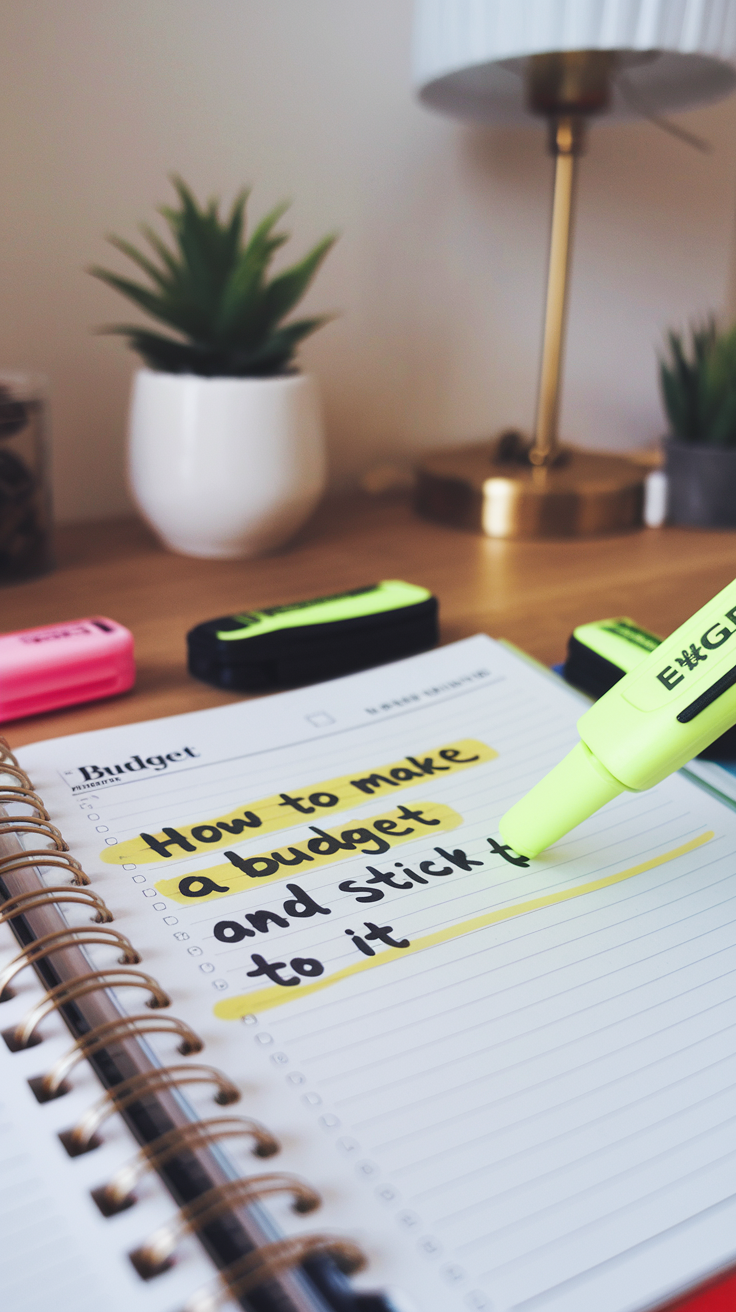 Budget
How to make
a budget
and stick t
to it